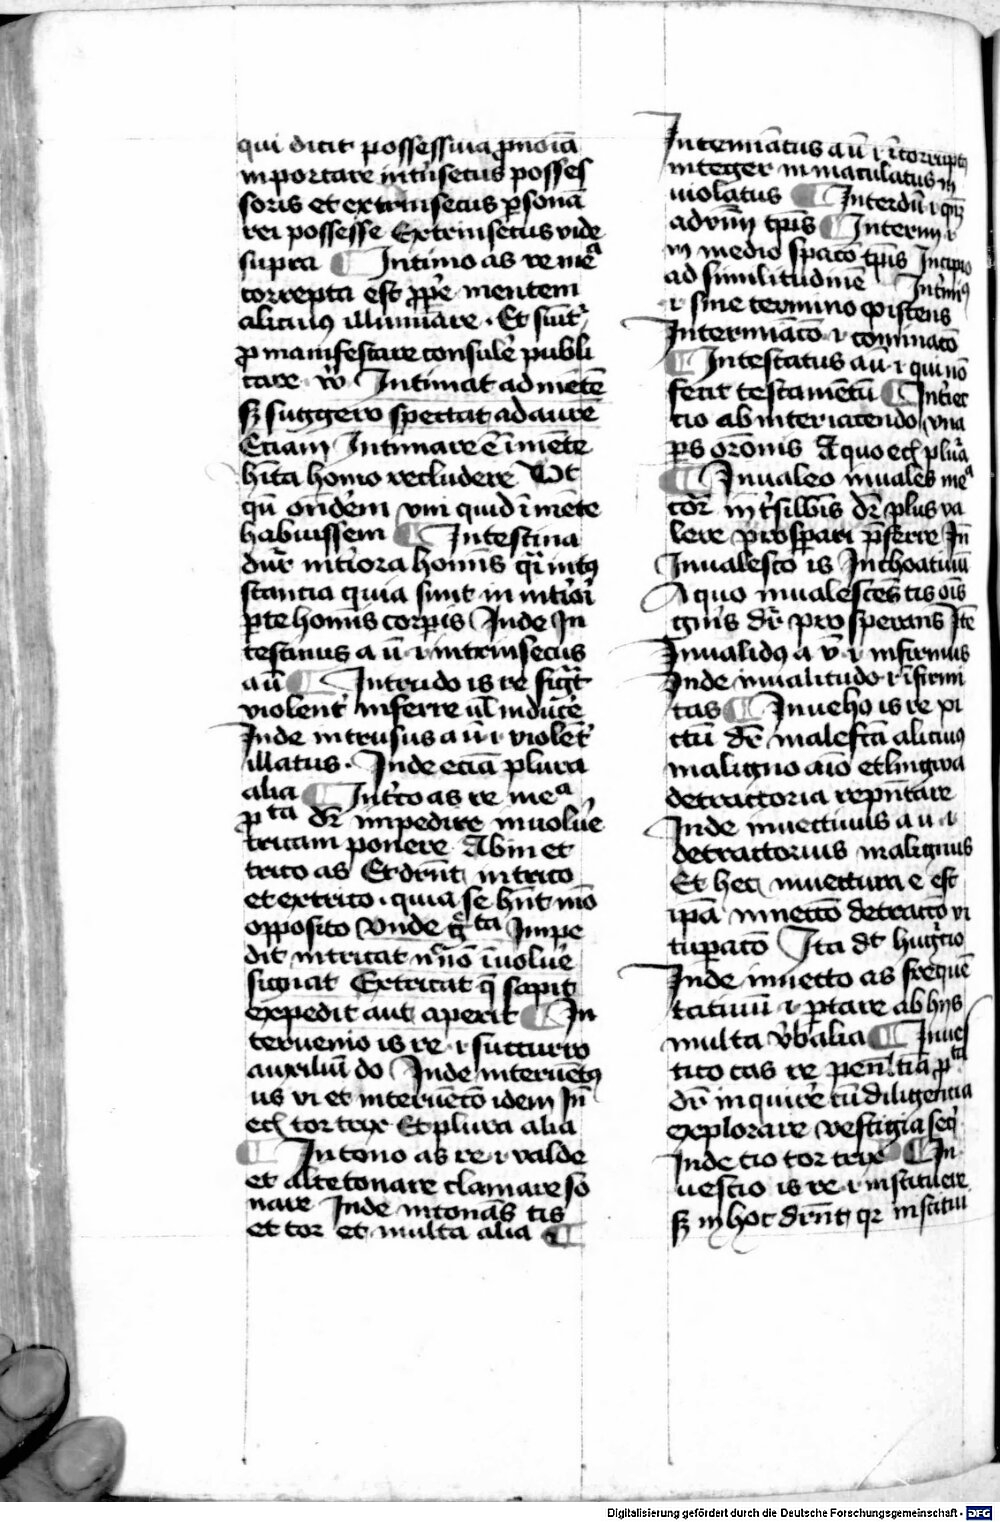 qui dicit possessiua p̄noīa
inportare int̓nsecus posses
soris et extrinsecus ꝑsonā
rei possesse Extrinsecus vide
supra ¶ Intimo as re meᵃ
correpta est ꝓpͤe mentem
alicuiꝰ illumīare. Et sūit̄
ꝓ manifestare consulē publi
care v̓o Intimat ad mētē
sꝫ suggero spectat ad aurē
Eciam Intimare ē ī mēte
hīta homo recludere Ut
qn̄ ondēm vni quid ī mēte
habuissem ¶ Intestina
dūr int̓iora homīs q̄i intꝰ
stancia quia sunt in int̓iōi
ꝑte homīs corꝑis Inde In
testinus a ū .i. intrinsecus
aū ¶ Intrudo is re sigͣt
violent̓ inferre ul̄ inducͤe
Inde intrusus a ū .i. violēt̓
illatus. Inde eciā plura
alia ¶ Int̓co as re meᵃ
ꝑᵗᵃ dr̄ impedire inuolūe
tricam ponere Ab in et
trico as Et drn̄t intrico
et extrico. quia se hn̄t mō
opposito Vnde gᵗᵃ Impe
dit intricat nͨnō īuoluͤe
signat Extricat q̄ sapit
expedit aut aperit ¶ In
teruenio is re .i. succurro
auxiliū do Inde interuētꝰ
us vi et interuēcō idem In̄
ecͥ tor trix Et plura alia
¶ Intono as re .i. valde
et alte tonare clamare so
nare Inde intonās tis
et tor et multa alia ¶
Intemīatus a ū .i. īcorrupt9
integer inmaculatus in
uiolatus ¶ Interdū .i. qn̄qꝫ
ad vnū tp̄is ¶ Interim .i.
in medio spacō tp̄is Incipio
ad similitudinē Int̓miꝰ
.i. sine termino existens
Intermīacō .i. comīnacō
¶ Intestatus a ū .i. qui nō
fecit testamētū ¶ Int̓iec
cio ab interiacendo vna
ꝑs or̄onis A quo ecͥ plūa
¶ Inualeo inuales meᵃ
cor̄ in t̓silb̄is dr̄ plus va
lere prosꝑari p̄ferre In̄
Inualesco is Inchoatiuū
A quo inualescēs tis oīs
gn̄is dr̄ prosperans Itē
Inualidꝰ a v̄ .i. infirmus
Inde inualitudo .i. īfirmi
tas ¶ Inueho is re xi
ctū dr̄ malefc̄a alicuiꝰ
maligno aīo et lingwa
detractoria repn̄tare
Inde inuectiuus a u .i.
detractorius malignus
Et hec inuectiua e est
ipā inuectō detractō vi
tuperacō Ita dt̄ hugͨcio
Inde inuecto as frequē
tatiuū .i. ꝑtare ab hijs
multa v̓balia ¶ Inues
tico cas re penl̄tīa ꝓᵗᵃ
dr̄ inquire cū diligencia
explorare vestigia seq̄
Inde cio tor trix ¶ In
uescio is re .i. instituere
sꝫ in hoc drn̄t qr̄ institui